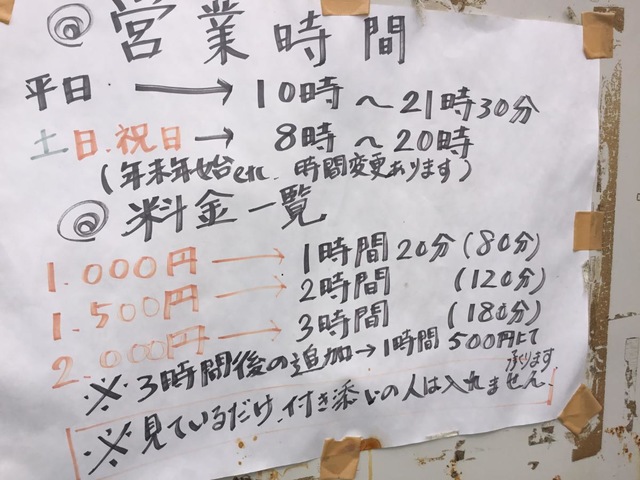 @ 営業時間
平日 → 10時 ～ 21時30分
土日.祝日 → 8時 ～ 20時
(年末年始etc. 時間変更あります)
@ 料金一覧
1.000円 → 1時間20分(80分)
1.500円 → 2時間 (120分)
2.000円 → 3時間 (180分)
※3時間後の追加→1時間 500円にて
承ります
※見ているだけ.付き添いの人は入れません.